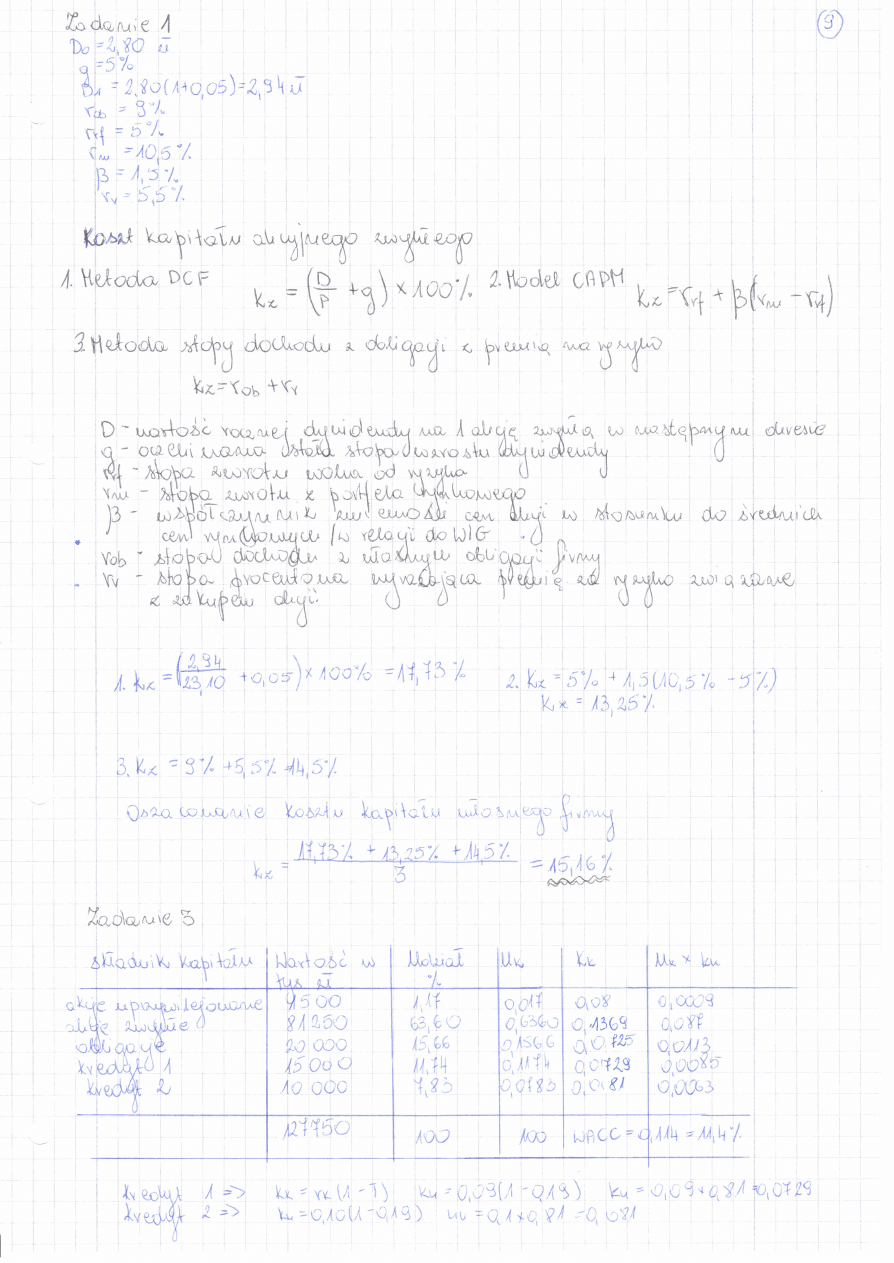 9
Zadanie 1
D₀ = 2,80 zł
g = 5%
D₁ = 2,80(1+0,05)=2,94 zł
rob = 9%
rrf = 5%
rm = 10,5%
β = 1,5%
rr = 5,5%
Koszt kapitału akcyjnego zwykłego
1. Metoda DCF kz = (D/P + g) × 100% 2. Model CAPM kz = rrf + β(rm - rrf)
3. Metoda stopy dochodu z obligacji z premią na ryzyko
kz = rob + rr
D - wartość rocznej dywidendy na 1 akcję zwykłą w następnym okresie
g - oczekiwana stała stopa wzrostu dywidendy
rrf - stopa zwrotu wolna od ryzyka
rm - stopa zwrotu z portfela rynkowego
β - współczynnik zmienności cen akcji w stosunku do średnich
cen rynkowych /w relacji do WIG
rob - stopa dochodu z własnych obligacji firmy
rr - stopa procentowa wyrażająca premię za ryzyko związane
z zakupem akcji.
1. kz = (2,94/23,10 + 0,05) × 100% = 17,73% 2. kz = 5% + 1,5(10,5% - 5%)
kz = 13,25%
3. kz = 9% + 5,5% = 14,5%
Oszacowanie kosztu kapitału własnego firmy
kz = (17,73% + 13,25% + 14,5%)/3 = 15,16%
Zadanie 3
składnik kapitału Wartość w tys zł Udział % Uk Kk Uk × kk
akcje uprzywilejowane 1500 1,17 0,017 0,08 0,0009
akcje zwykłe 81250 63,60 0,6360 0,1369 0,087
obligacje 20 000 15,66 0,1566 0,0725 0,0113
kredyt 1 15000 11,74 0,1174 0,0729 0,0085
kredyt 2 10 000 7,83 0,0783 0,081 0,0063
127750 100 100 WACC = 0,114 = 11,4%
kredyt 1 => kk = rk(1 - T) kk = 0,09(1 - 0,19) kk = 0,09 × 0,81 = 0,0729
kredyt 2 => kk = 0,10(1-0,19) kk = 0,1 × 0,81 = 0,081